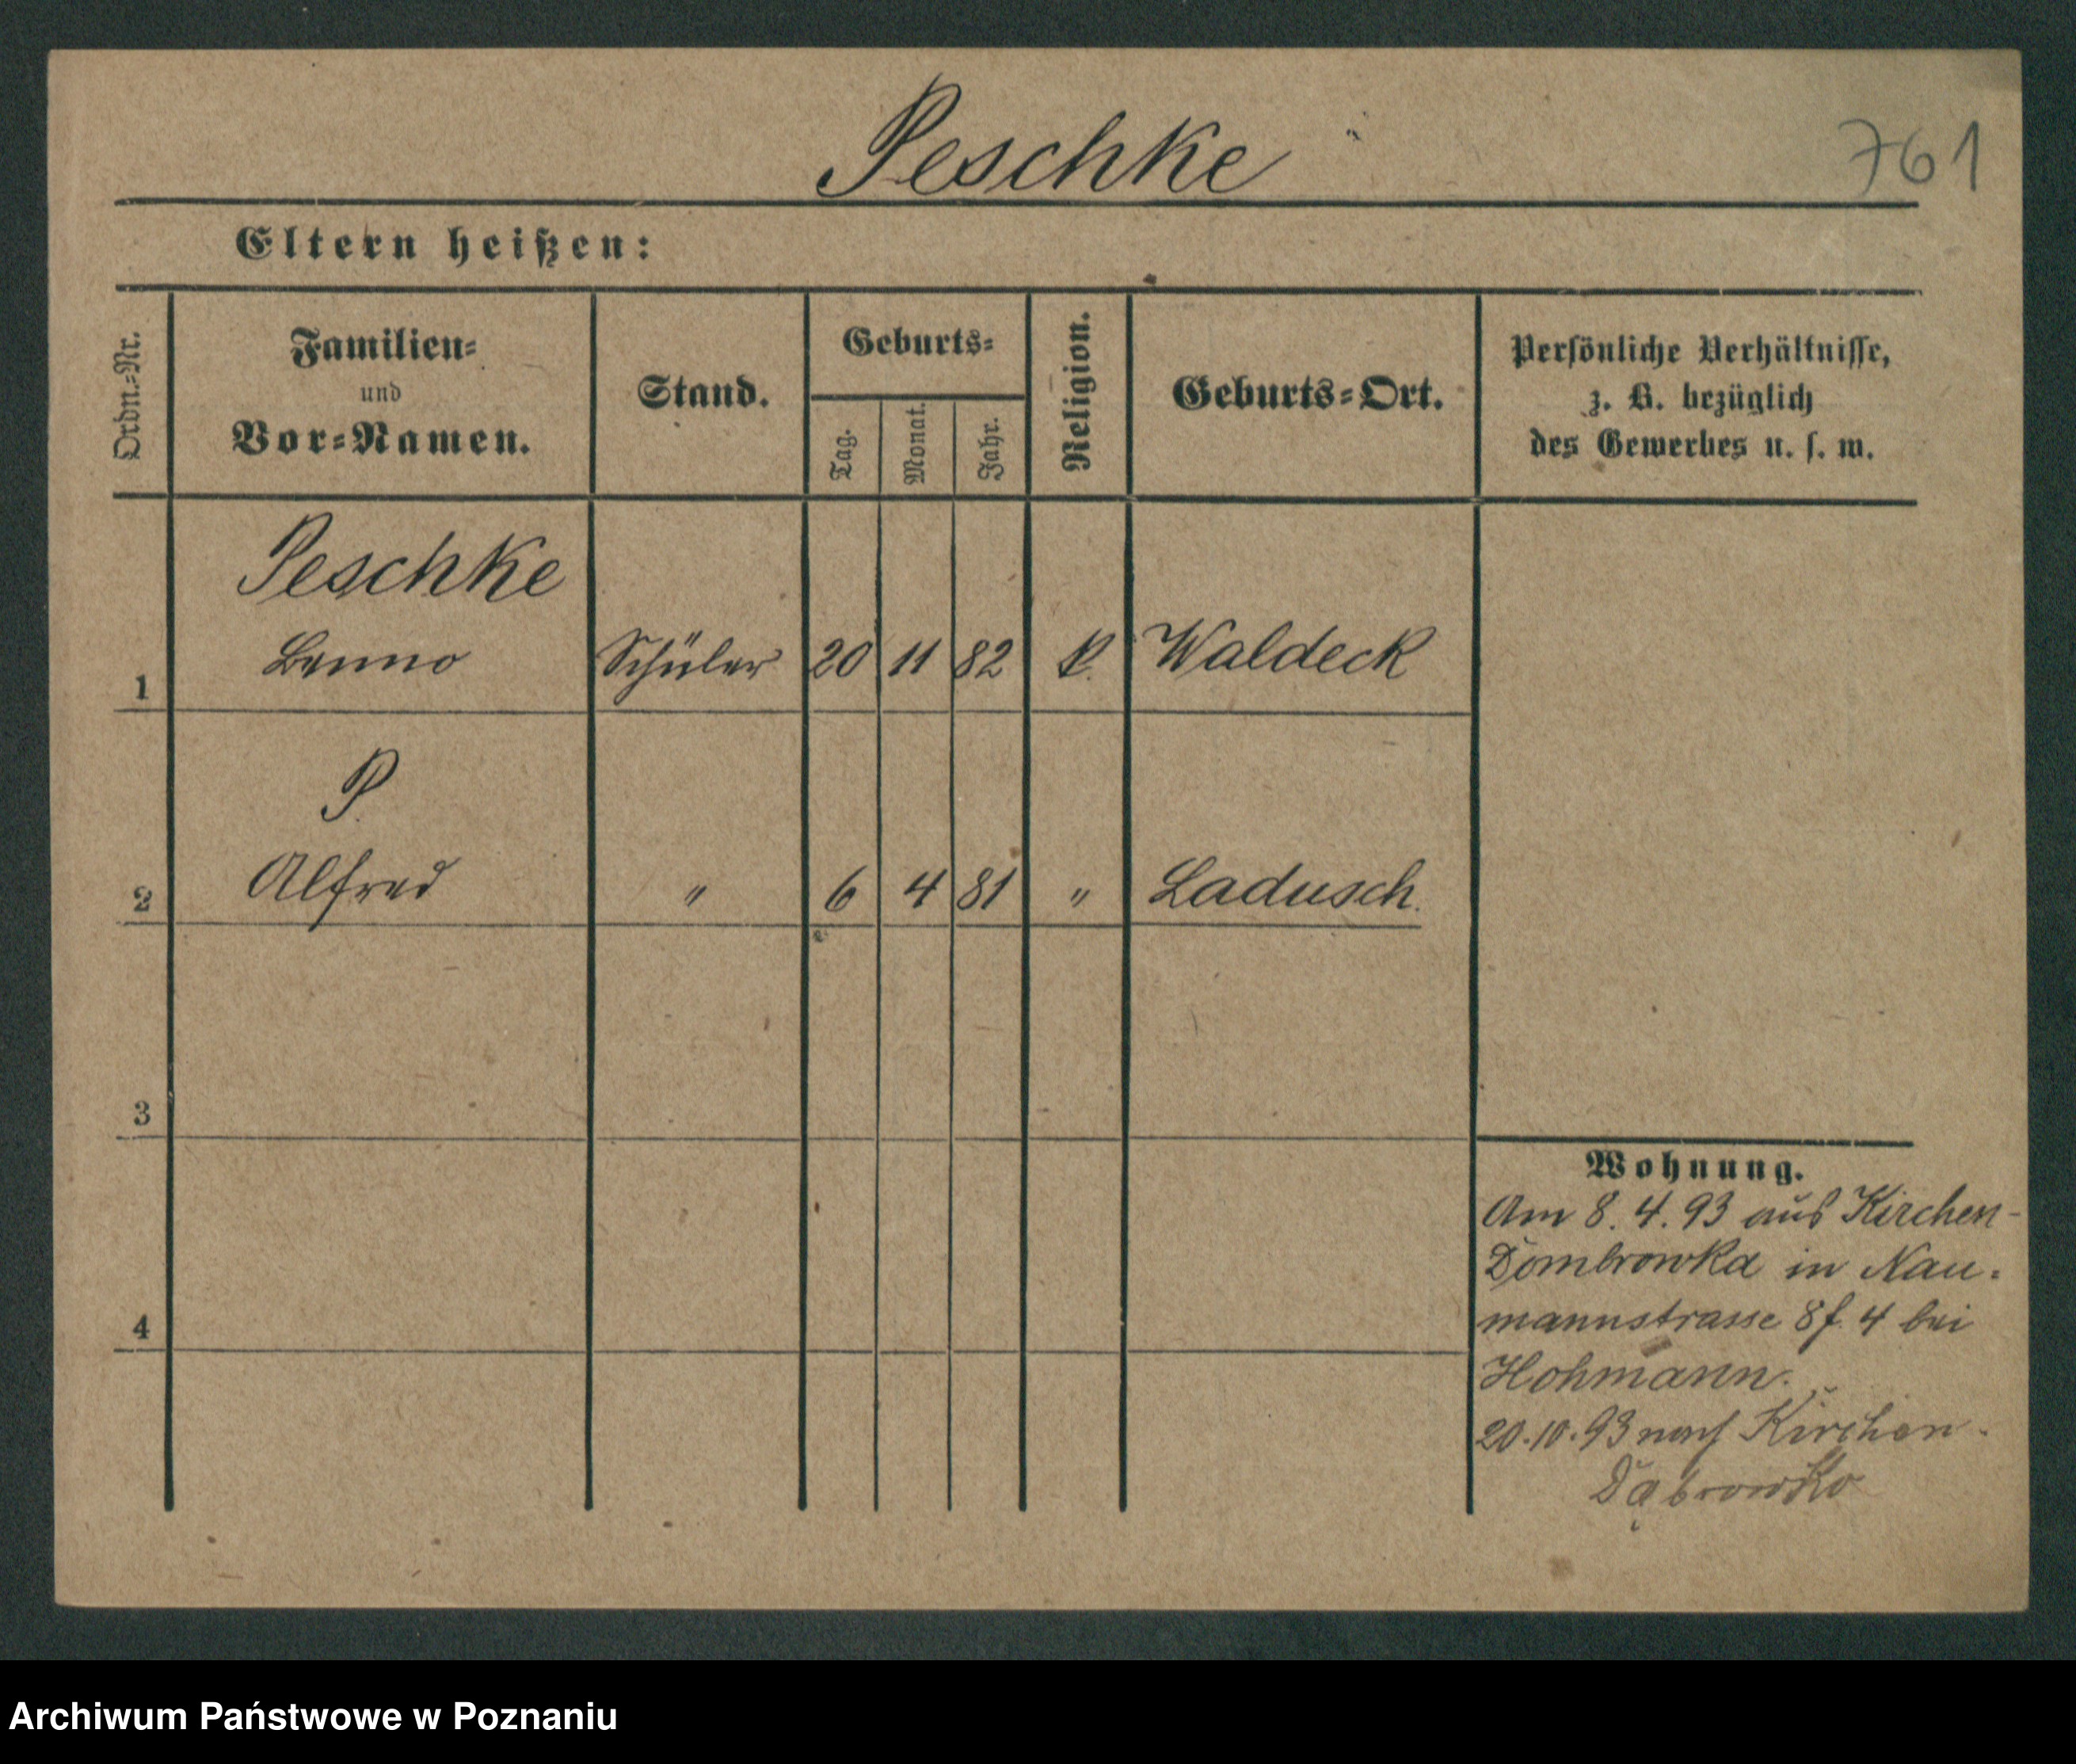 Peschke
761
Eltern heißen:
Ordn.-Nr.
Familien-
und
Vor-Namen.
Stand.
Geburts-
Tag.
Monat.
Jahr.
Religion.
Geburts-Ort.
Persönliche Verhältnisse,
z. B. bezüglich
des Gewerbes u. s. w.
Peschke
1 Benno Schüler 20 11 82 k. Waldeck
P.
2 Alfred " 6 4 81 " Ladusch.
3
4
Wohnung.
Am 8. 4. 93 aus Kirchen-
Dombrowka in Nau-
mannstrasse 8 f. 4 bei
Hohmann.
20.10.93 nach Kirchen-
Dąbrowko
Archiwum Państwowe w Poznaniu